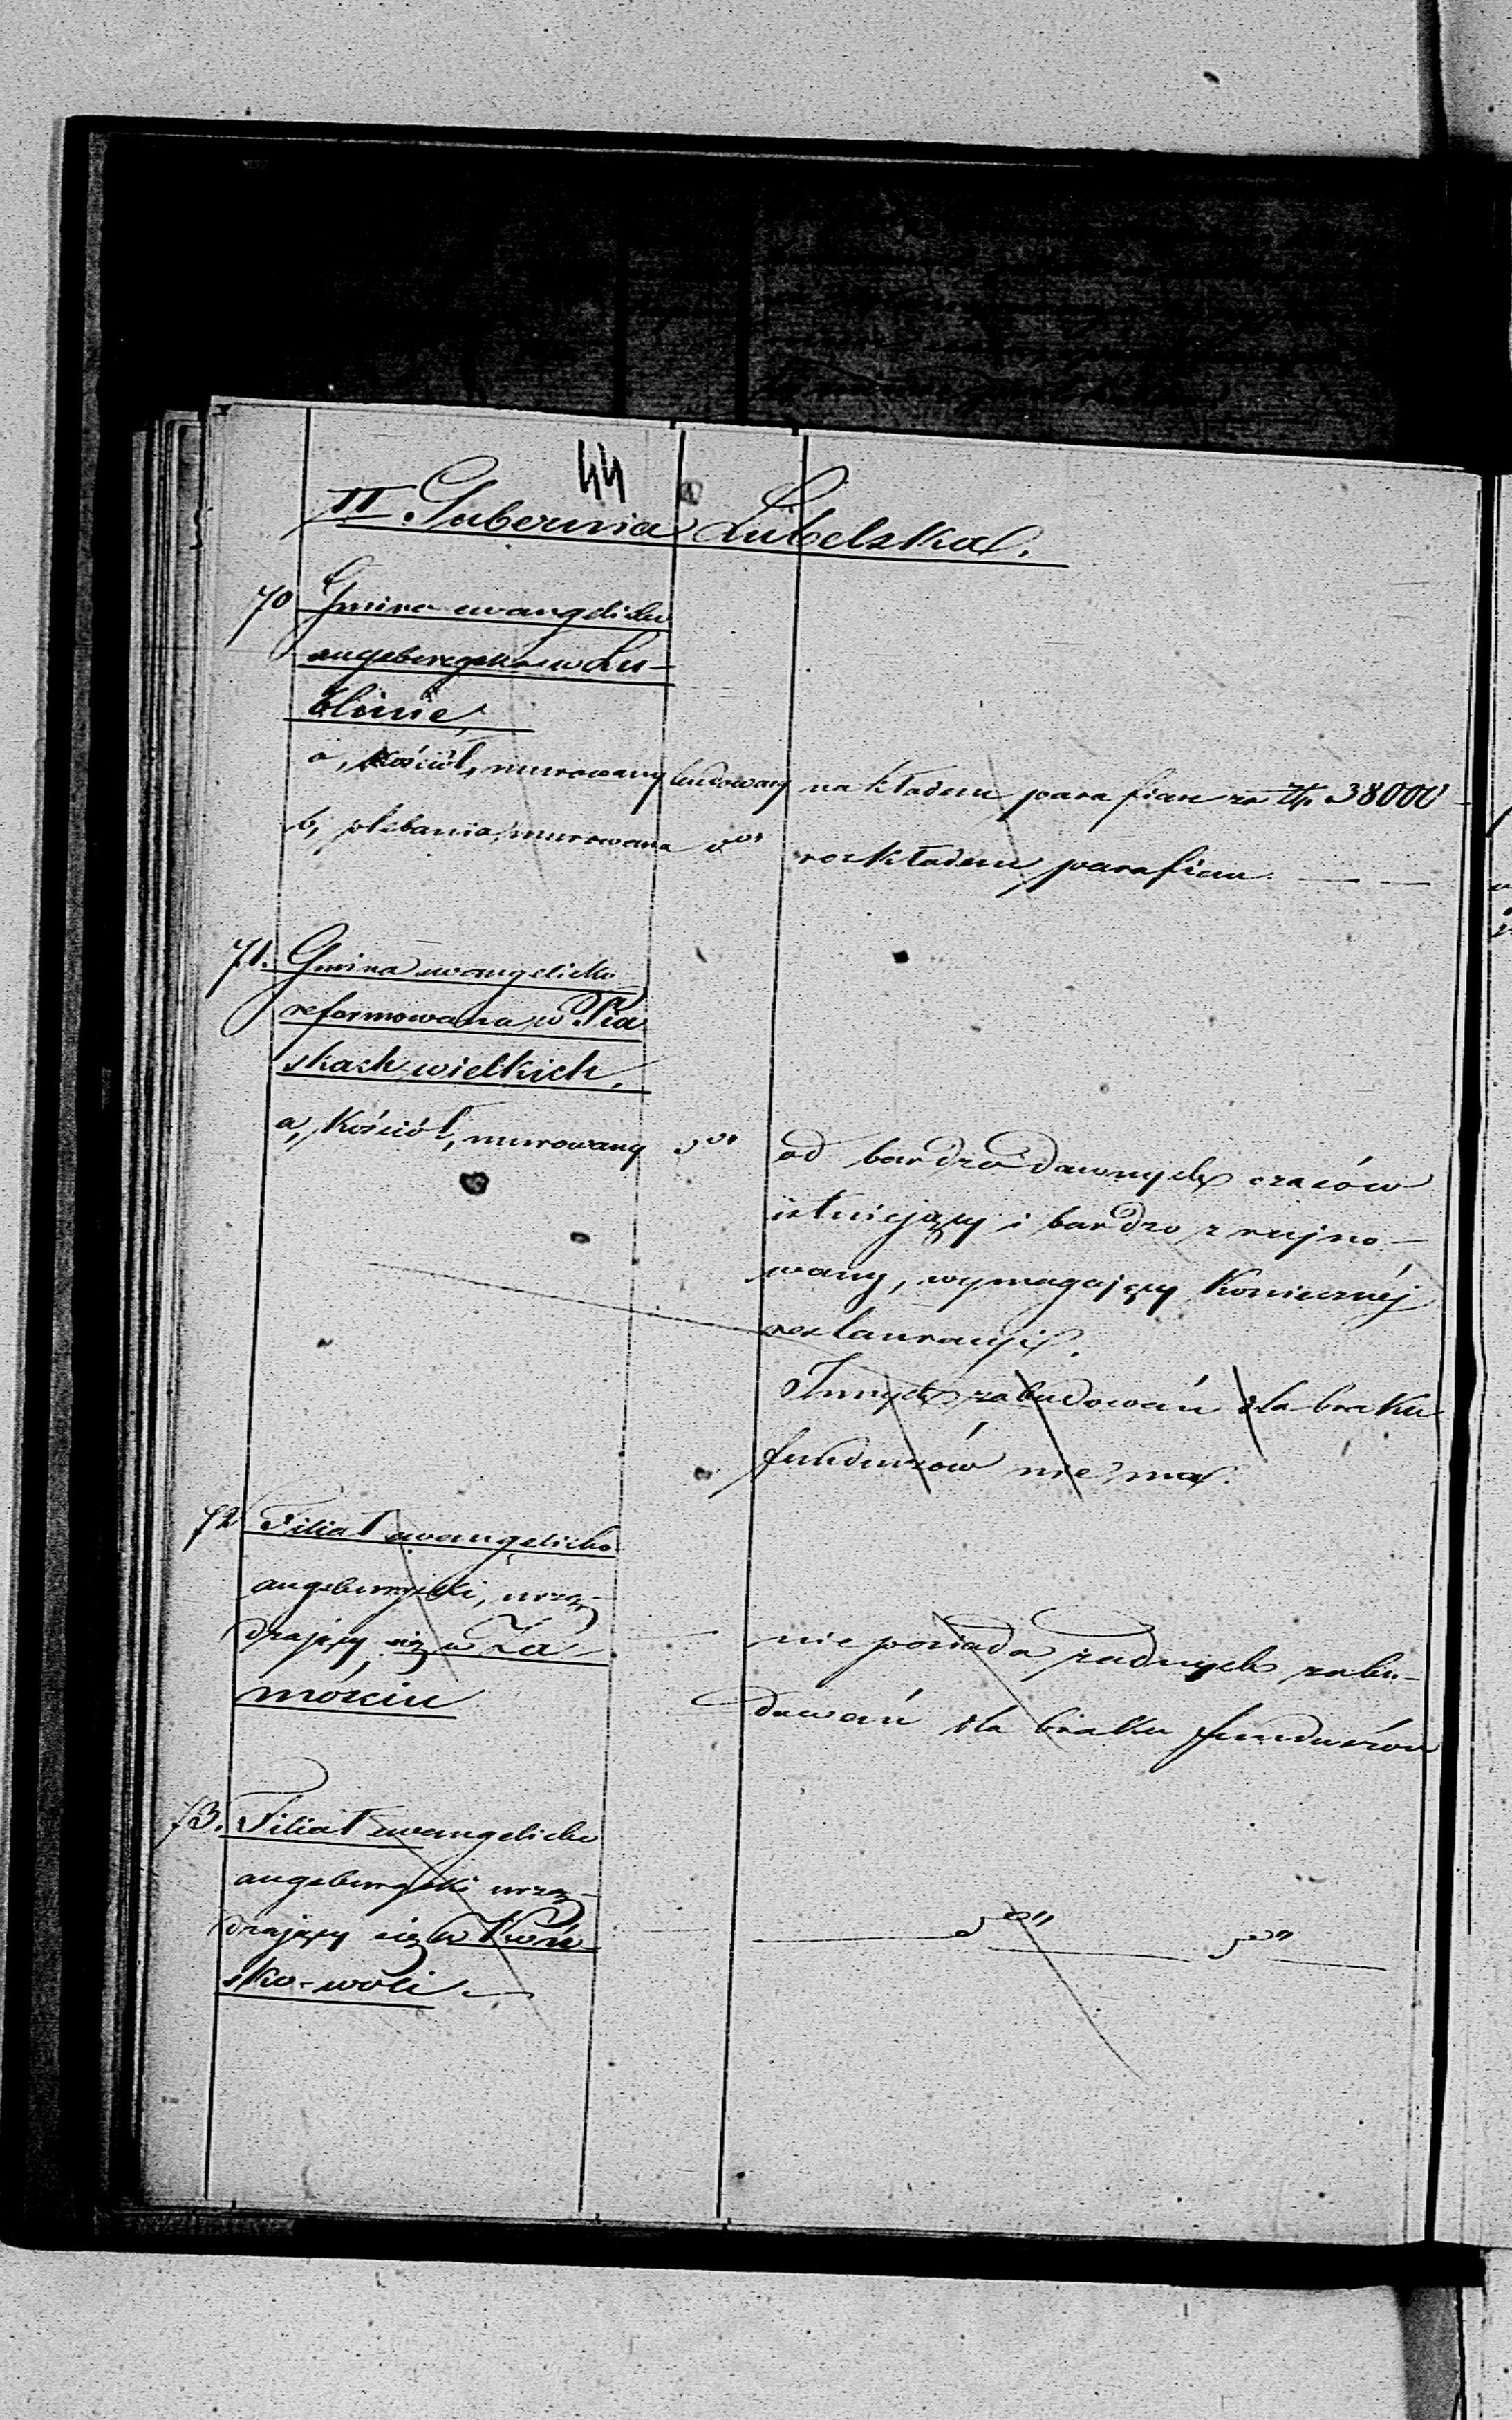 44
II. Gubernia Lubelska.
70 Gmina ewangelicko
augsburgska w Lu-
blinie,
a, Kościół, murowany budowany nakładem parafian za Złp. 38000
b, plebania, murowana dto rozkładem parafian. — —
71. Gmina ewangelicko
reformowana w Pia
skach wielkich,
a, Kościół, murowany dto od bardzo dawnych czasów
istniejący i bardzo zrujno-
wany, wymagający Koniecznéj
restauracyi.
Innych zabudowań dla braku
funduszów nie ma.
72 Filiał ewangelicko
augsburgski, urzą-
dzający się w Za-
mościu
nie posiada żadnych zabu-
dowań dla braku funduszów
73. Filiał ewangelicko
augsburgski urzą-
dzający się w Koń
sko-woli. —
— dto — dto —